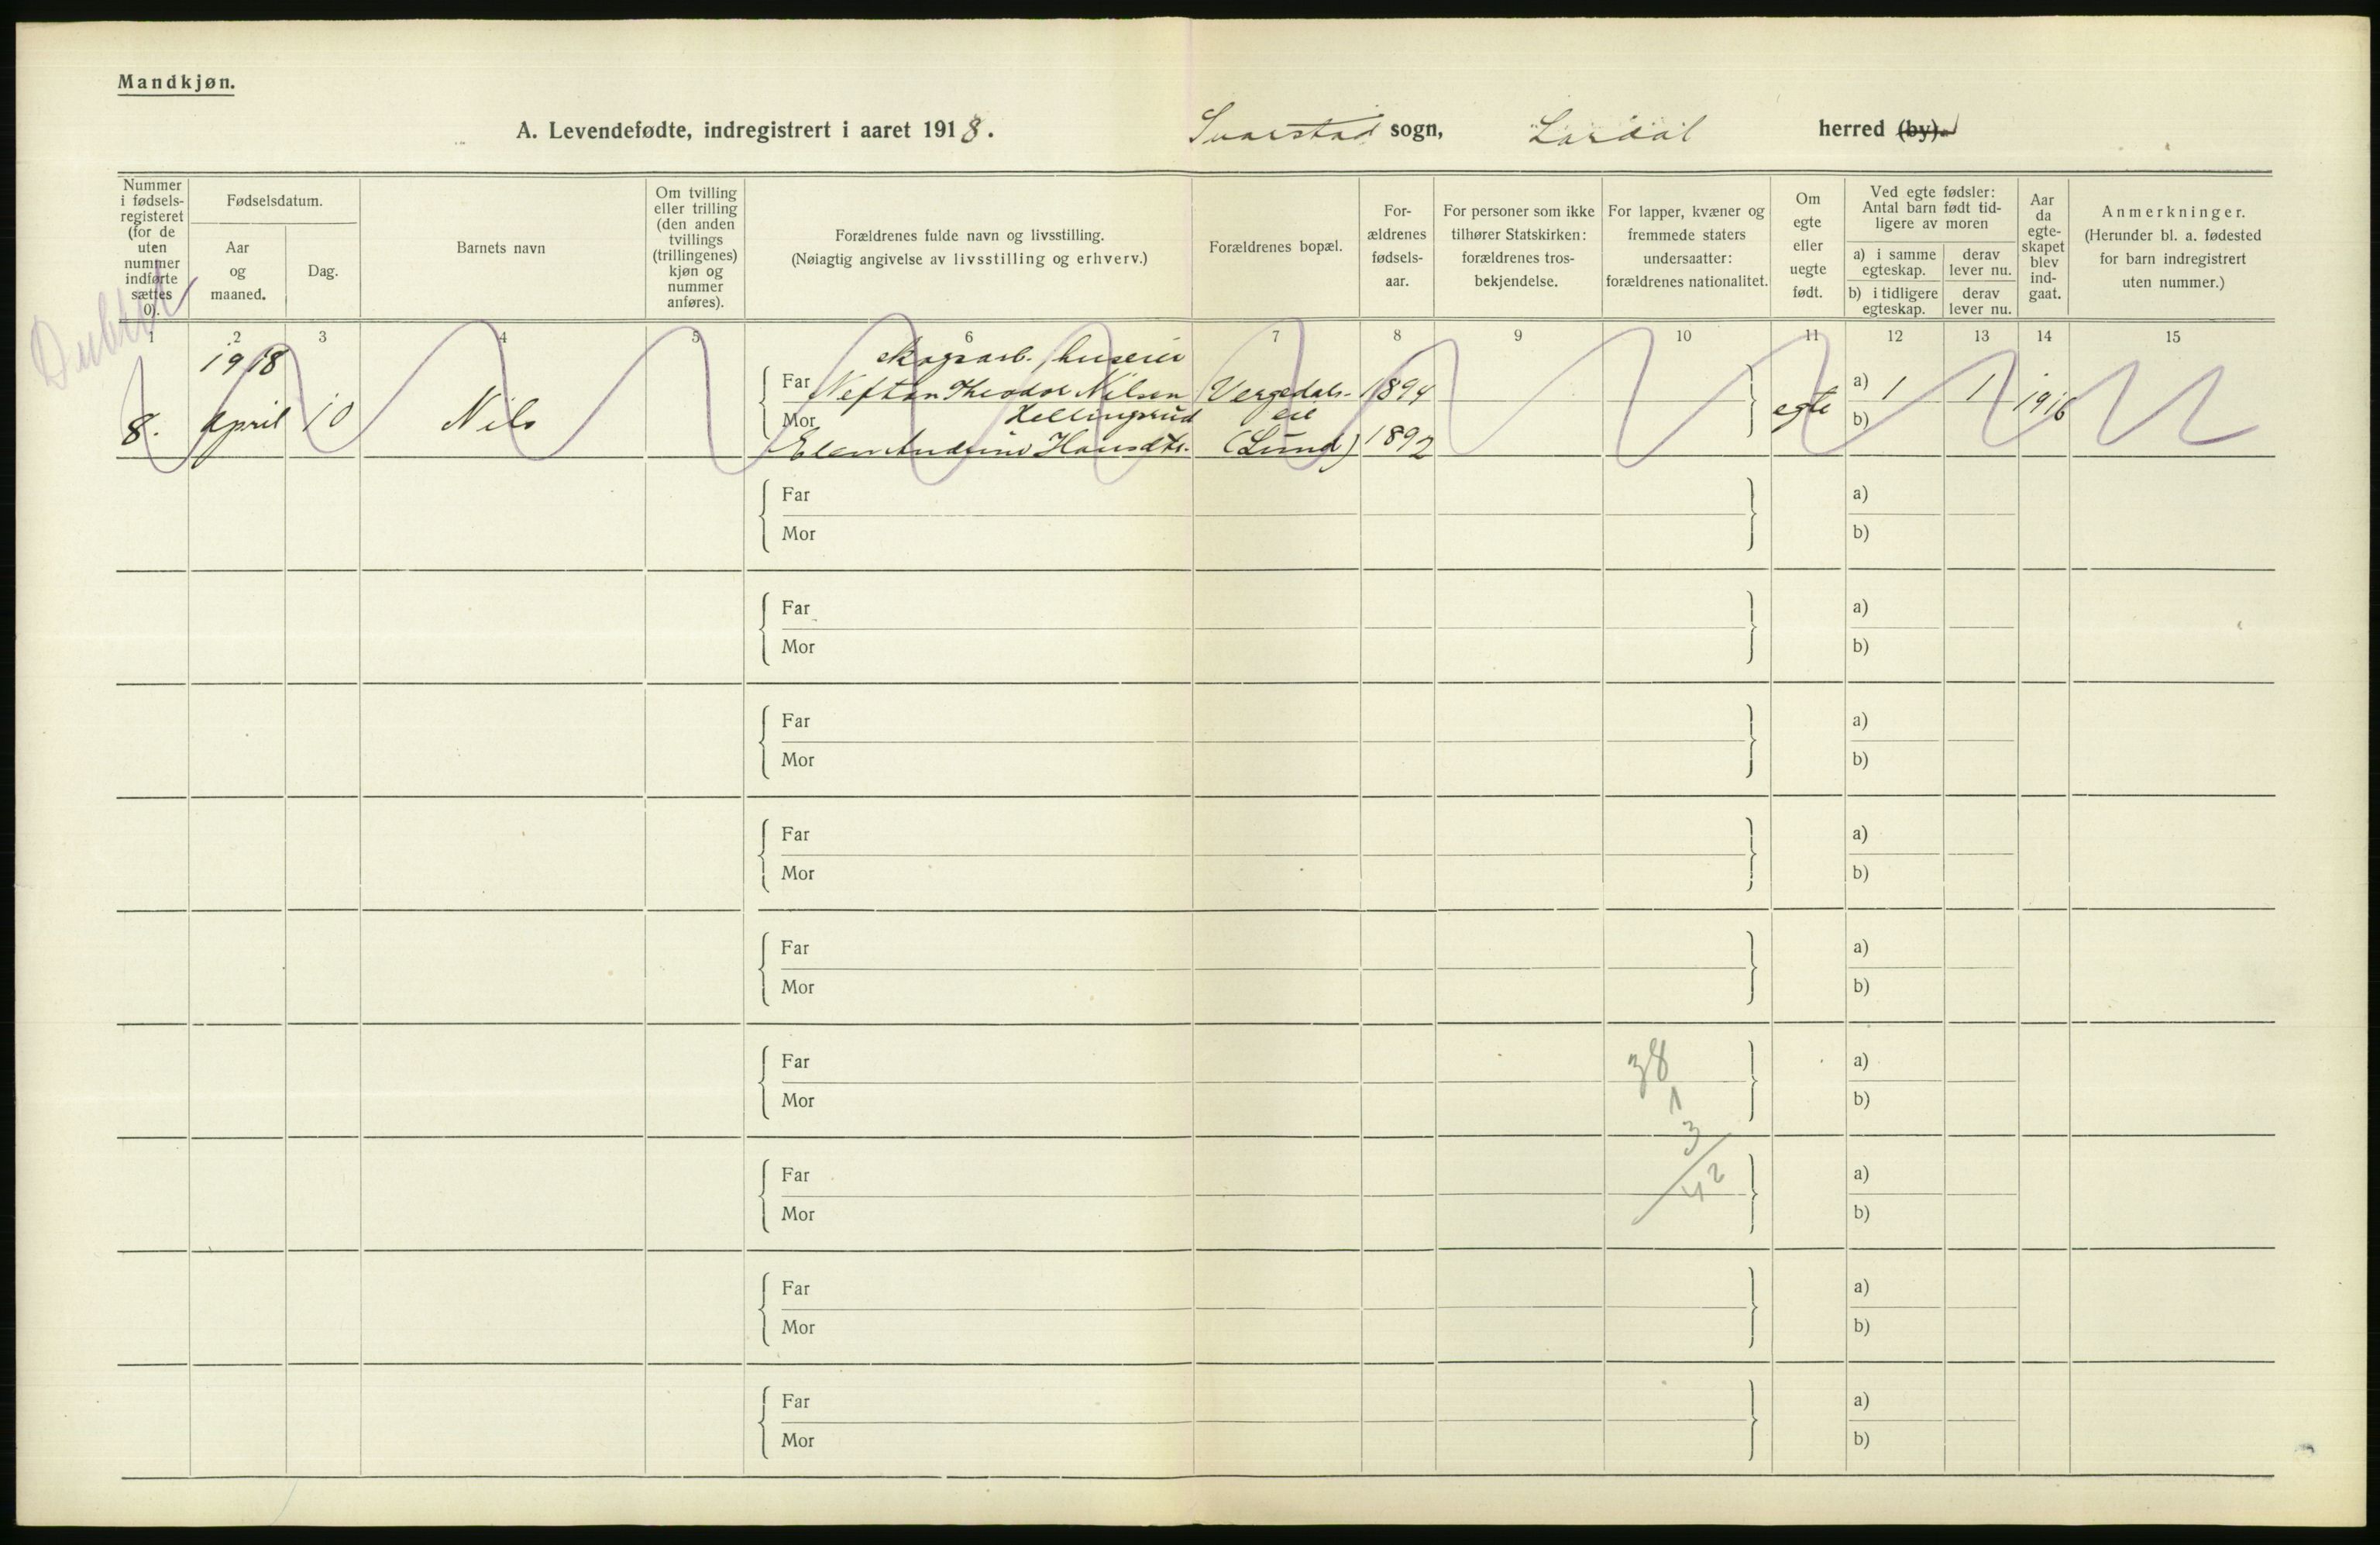 Mandkjøn.
A. Levendefødte, indregistrert i aaret 1918. Svarstad sogn, Lardal herred (by).
Nummer i fødselsregisteret (for de uten nummer indførte sættes 0).
Fødselsdatum.
Aar og maaned.
Dag.
Barnets navn
Om tvilling eller trilling (den anden tvillings (trillingenes) kjøn og nummer anføres).
Forældrenes fulde navn og livsstilling.
(Nøiagtig angivelse av livsstilling og erhverv.)
Forældrenes bopæl.
For-
ældrenes
fødsels-
aar.
For personer som ikke
tilhører Statskirken:
forældrenes tros-
bekjendelse.
For lapper, kvæner og
fremmede staters
undersaatter:
forældrenes nationalitet.
Om
egte
eller
uegte
født.
Ved egte fødsler:
Antal barn født tid-
ligere av moren
a) i samme egteskap.
derav lever nu.
b) i tidligere egteskap.
derav lever nu.
Aar
da
egte-
skapet
blev
ind-
gaat.
Anmerkninger.
(Herunder bl. a. fødested
for barn indregistrert
uten nummer.)
1 2 3 4 5 6 7 8 9 10 11 12 13 14 15
1918 skogsarb. huseier
Far Neftan Theodor Nilsen Vergedals- 1894 a) 1 1
8. April 10 Nils Hellingsrud eie egte 1916
Mor b)
Elen Andrine Hansdtr. (Lund) 1892
Far a)
Mor b)
Far a)
Mor b)
Far a)
Mor b)
Far a)
Mor b)
Far a)
Mor b)
Far 38 a)
Mor 1 b)
3
Far 42 a)
Mor b)
Far a)
Mor b)
Far a)
Mor b)